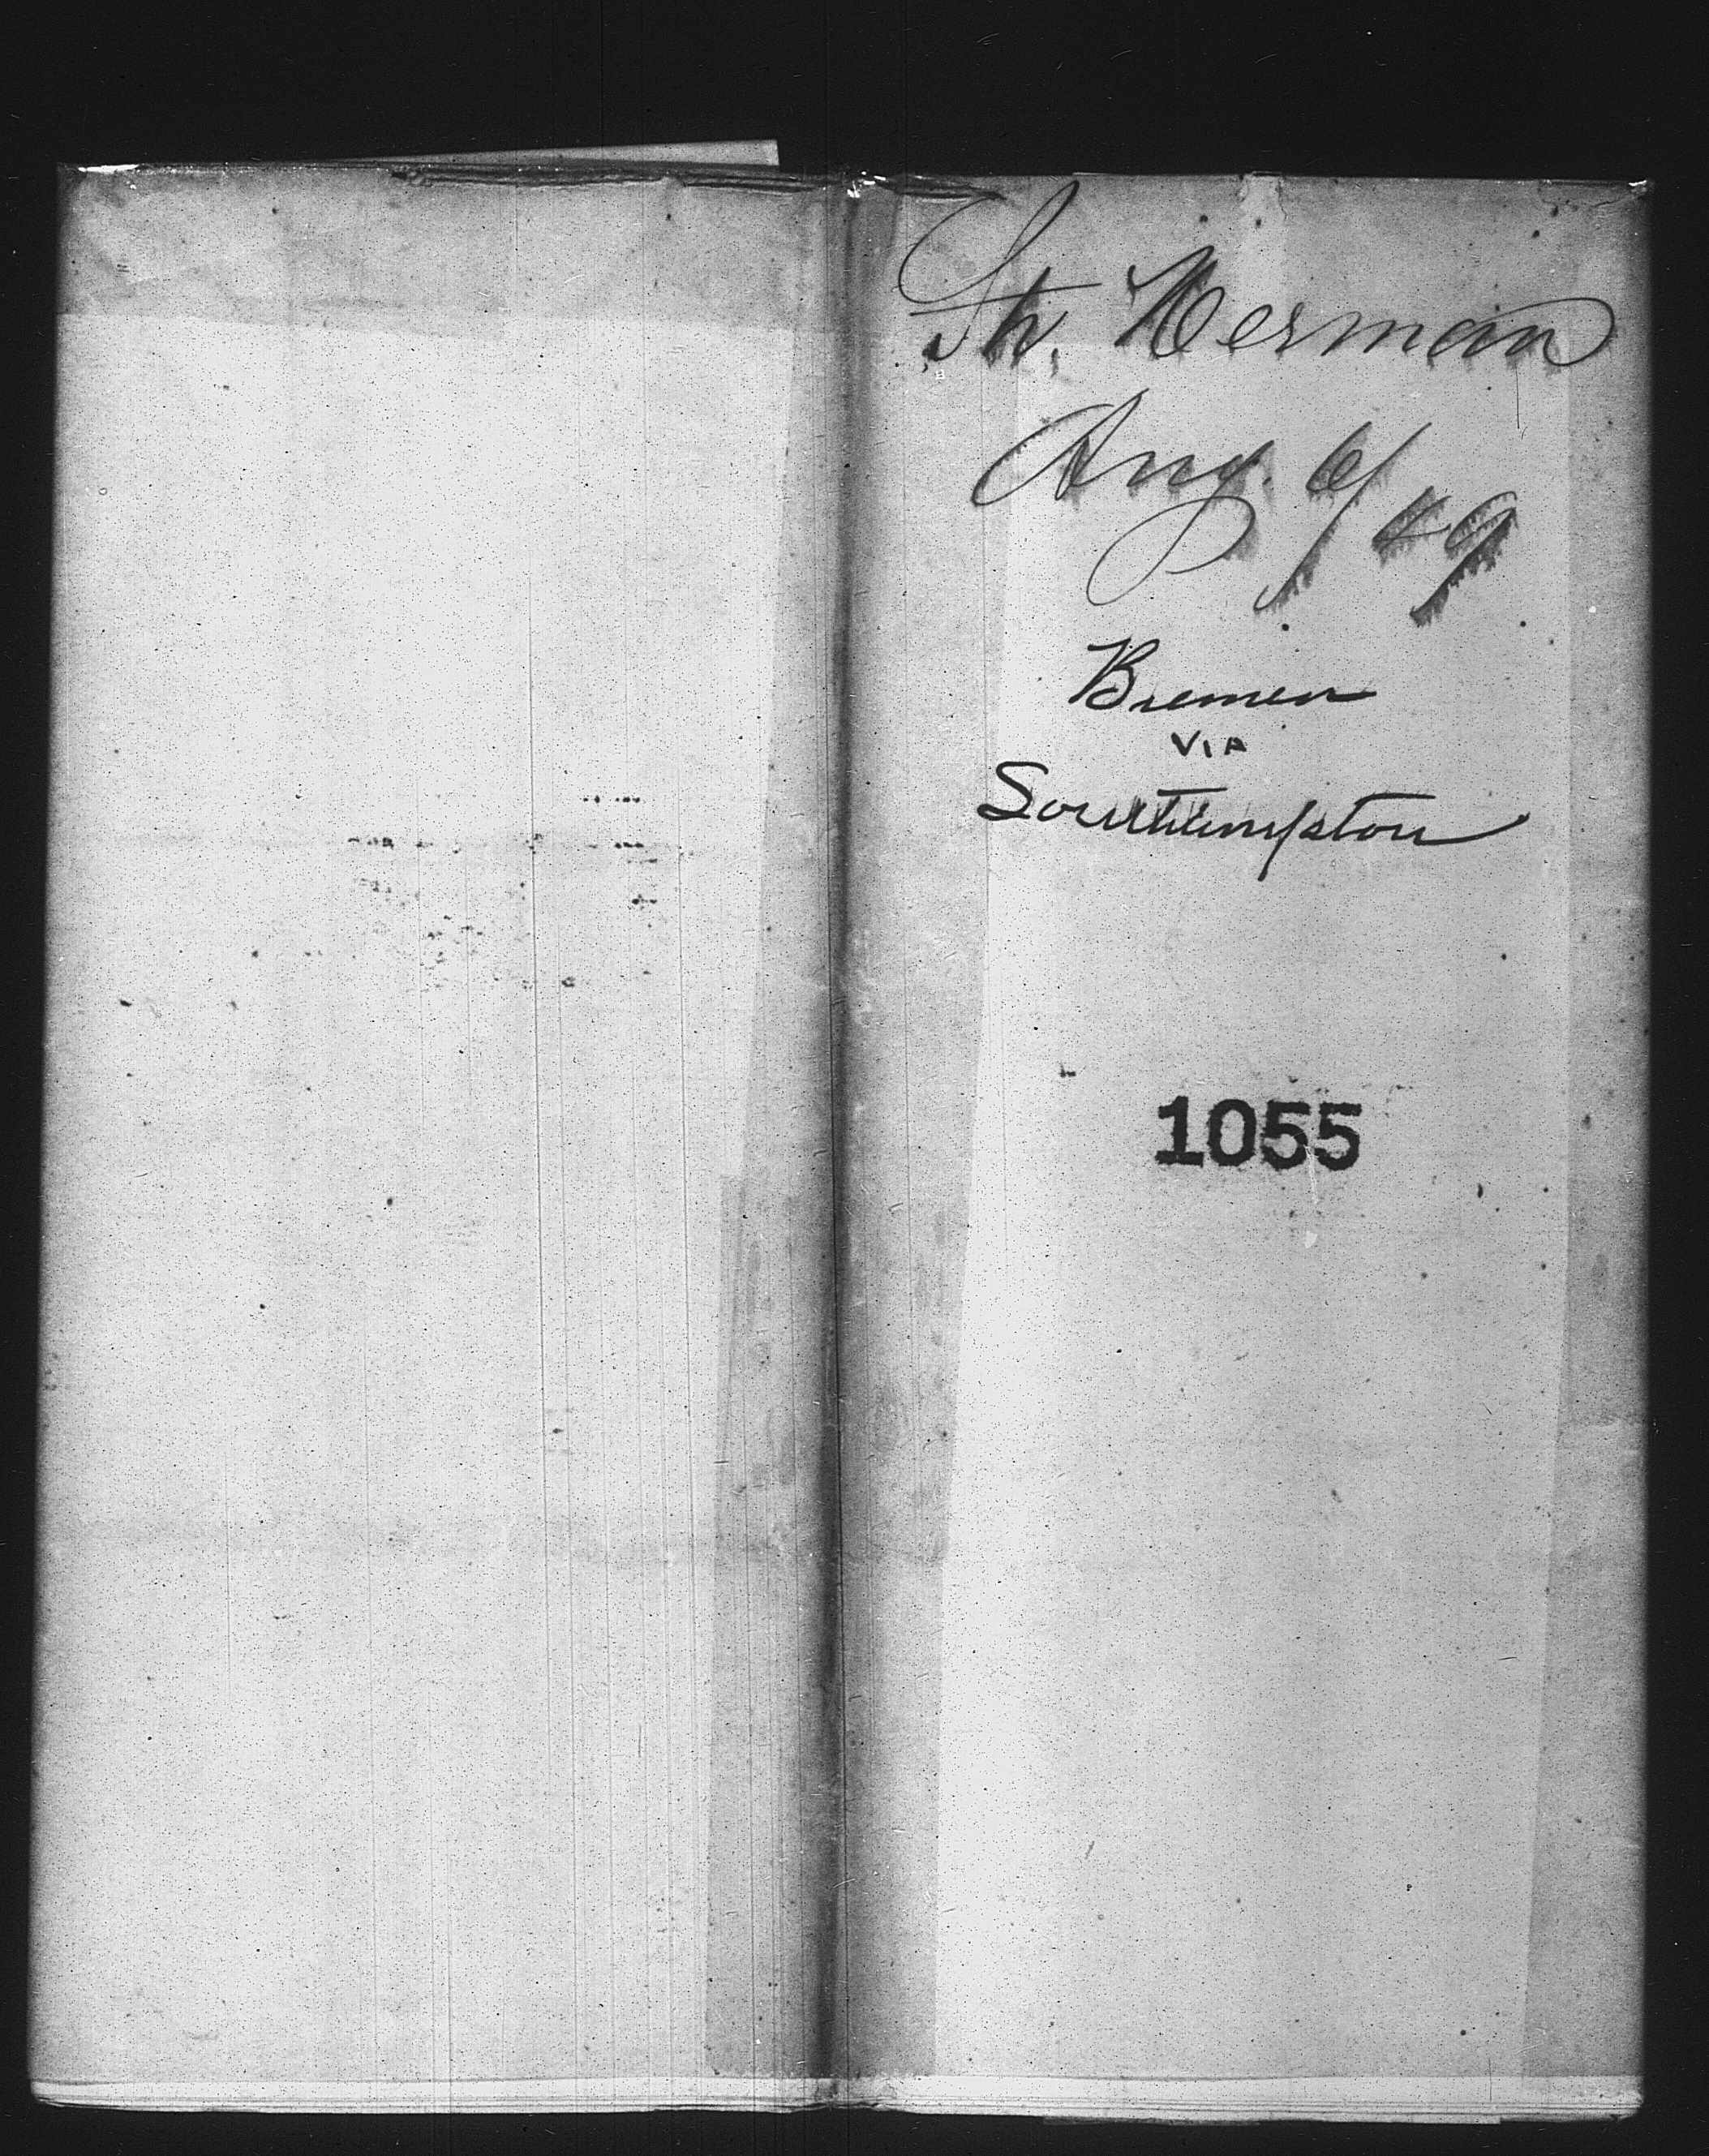 St. Herman
Aug. 6/49
Bremen
VIA
Southampton
1055